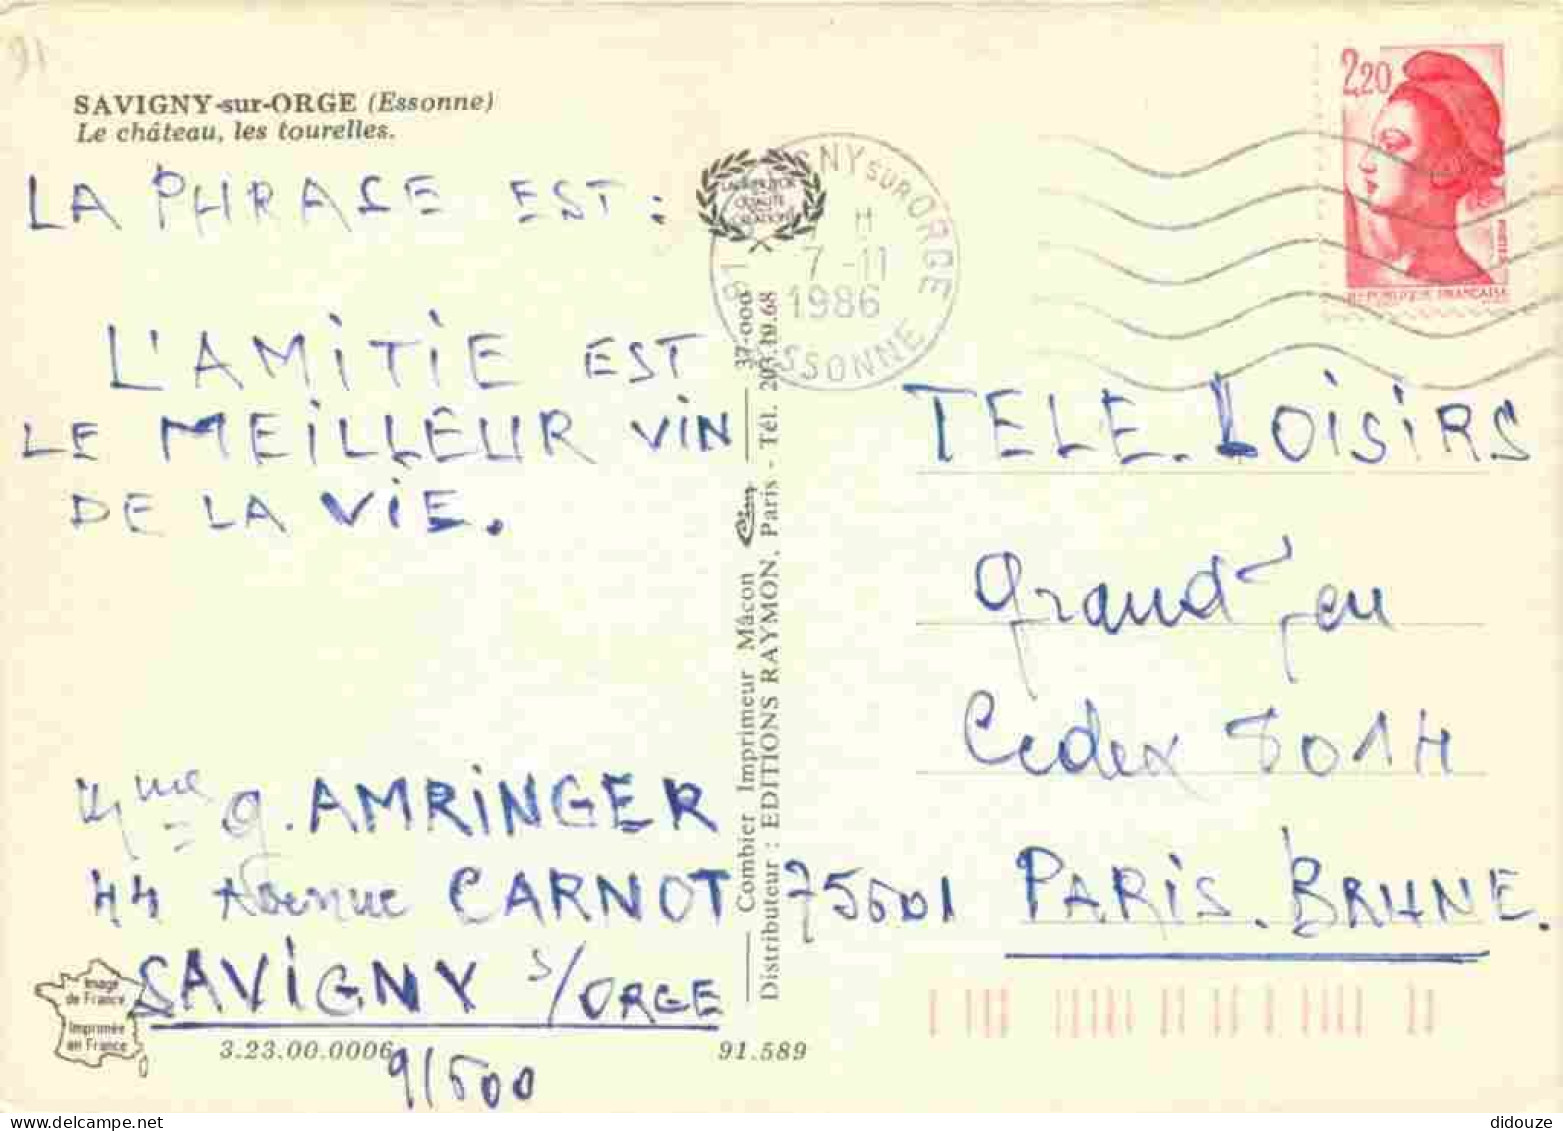 91
SAVIGNY-sur-ORGE (Essonne)
Le château, les tourelles.
LA PHRASE EST :
L'AMITIE EST
LE MEILLEUR VIN
DE LA VIE.
Mme G. AMRINGER
44 Avenue CARNOT
SAVIGNY S/ORGE
91600
Image
de France
Imprimée
en France
3.23.00.0006
91.589
Combier Imprimeur Mâcon Cim 37-000
Distributeur : EDITIONS RAYMON, Paris - Tél. 203.19.68
QUALITE
GNY SUR ORGE
H
7-11
1986
91 ESSONNE
2,20
REPUBLIQUE FRANÇAISE
POSTES
TELE. LOISIRS
Grand Jeu
Cedex 8014
75601 PARIS. BRUNE.
didouze